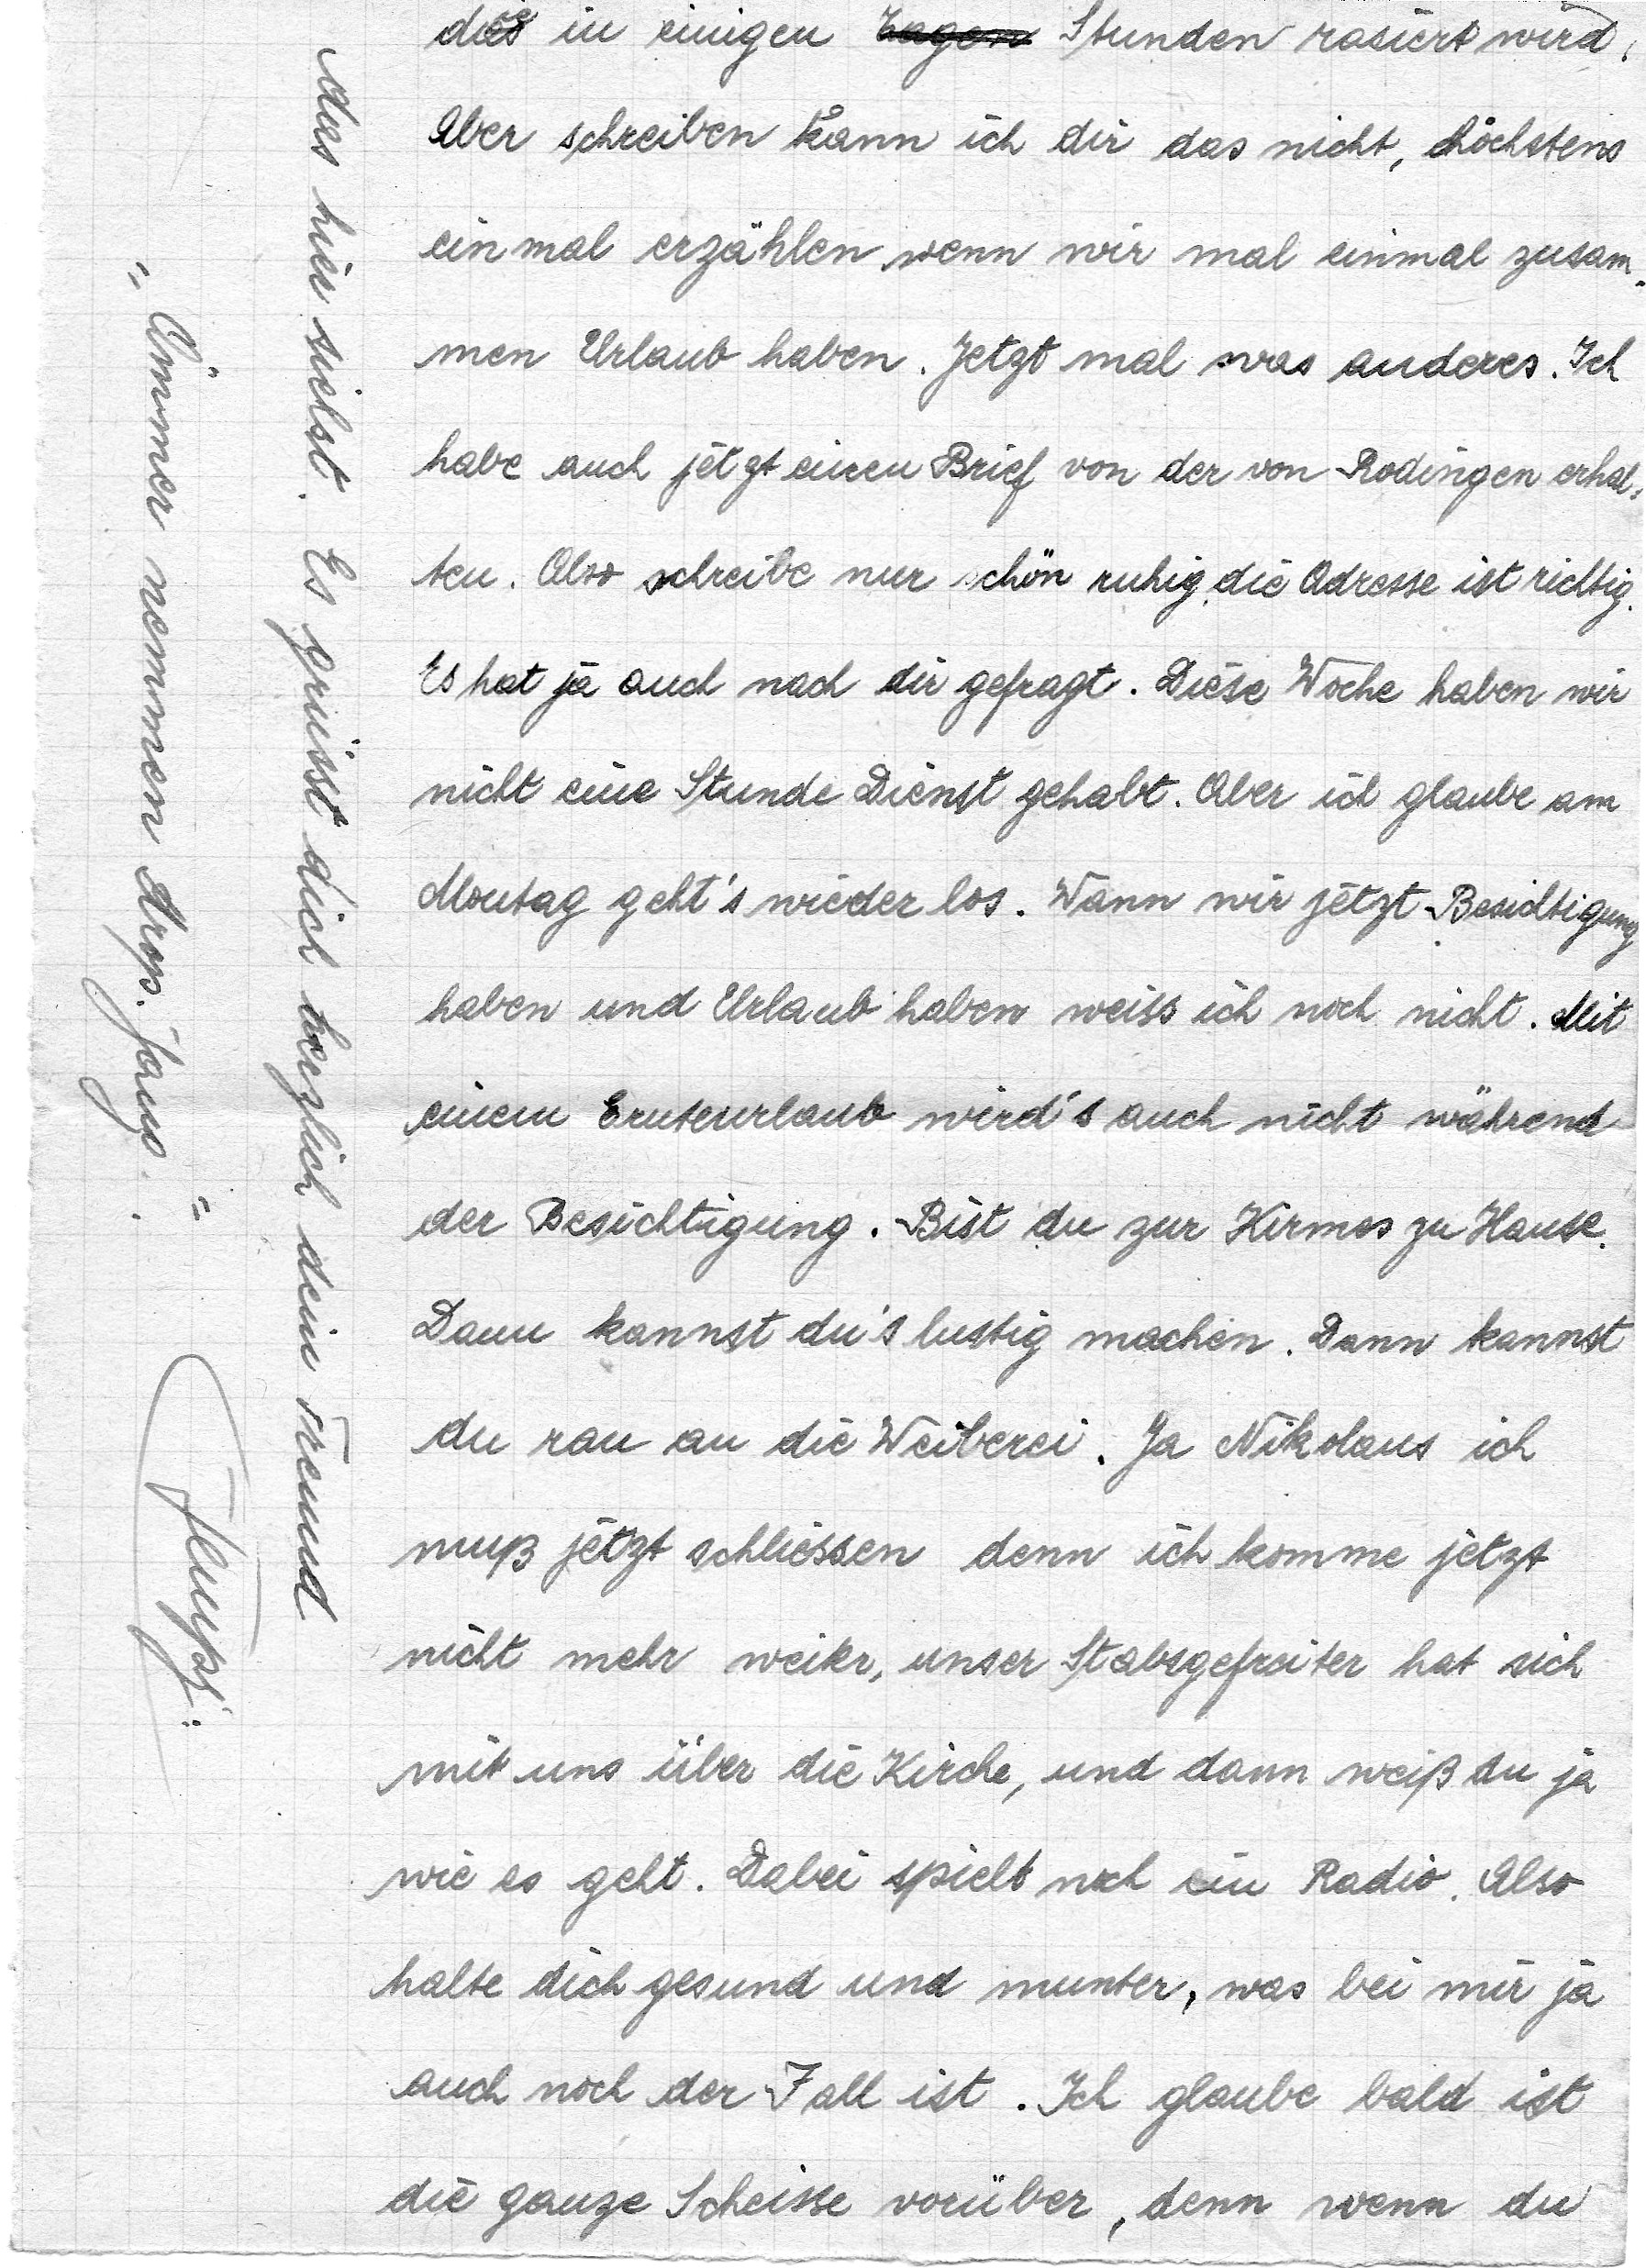 die in einigen Tagen Stunden rasiert wird.
Aber schreiben kann ich dir das nicht, höchstens
einmal erzählen wenn wir mal einmal zusam-
men Urlaub haben. Jetzt mal was anderes. Ich
habe auch jetzt einen Brief von der von Rodingen erhal-
ten. Also schreibe nur schön ruhig, die Adresse ist richtig.
Es hat ja auch nach dir gefragt. Diese Woche haben wir
nicht eine Stunde Dienst gehabt. Aber ich glaube am
Montag geht's wieder los. Wann wir jetzt Besichtigung
haben und Urlaub haben weiss ich noch nicht. Mit
einem Ernteurlaub wird's auch nicht während
der Besichtigung. Bist du zur Kirmes zu Hause.
Dann kannst du's lustig machen. Dann kannst
du ran an die Weiberei. Ja Nikolaus ich
muß jetzt schliessen denn ich komme jetzt
nicht mehr weiter, unser Stabsgefreiter hat sich
mit uns über die Kirche, und dann weiß du ja
wie es geht. Dabei spielt noch ein Radio. Also
halte dich gesund und munter, was bei mir ja
auch noch der Fall ist. Ich glaube bald ist
die ganze Scheisse vorüber, denn wenn du
das hier siehst. Es grüsst dich herzlich dein Freund
"Ümmer nemmen